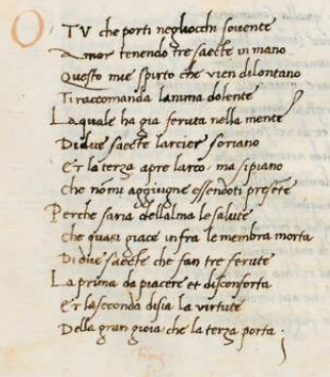 O TV che porti negliocchi sovente
Amor tenendo tre saecte in mano
Questo mie spirto che vien dilontano
Tiraccomanda lamma dolente
Laquale ha gia feruta nella mente
Didue saecte larcier soriano
Et la terza apre larco ma sipiano
Che nomi aggiugne essendoti presete
Perche saria dellalma le salute
che quasi giace infra le membra morta
Didue saecte che fan tre ferute
La prima da piacere et disconforta
Et laseconda disia la virtute
Della gran gioia che la terza porta